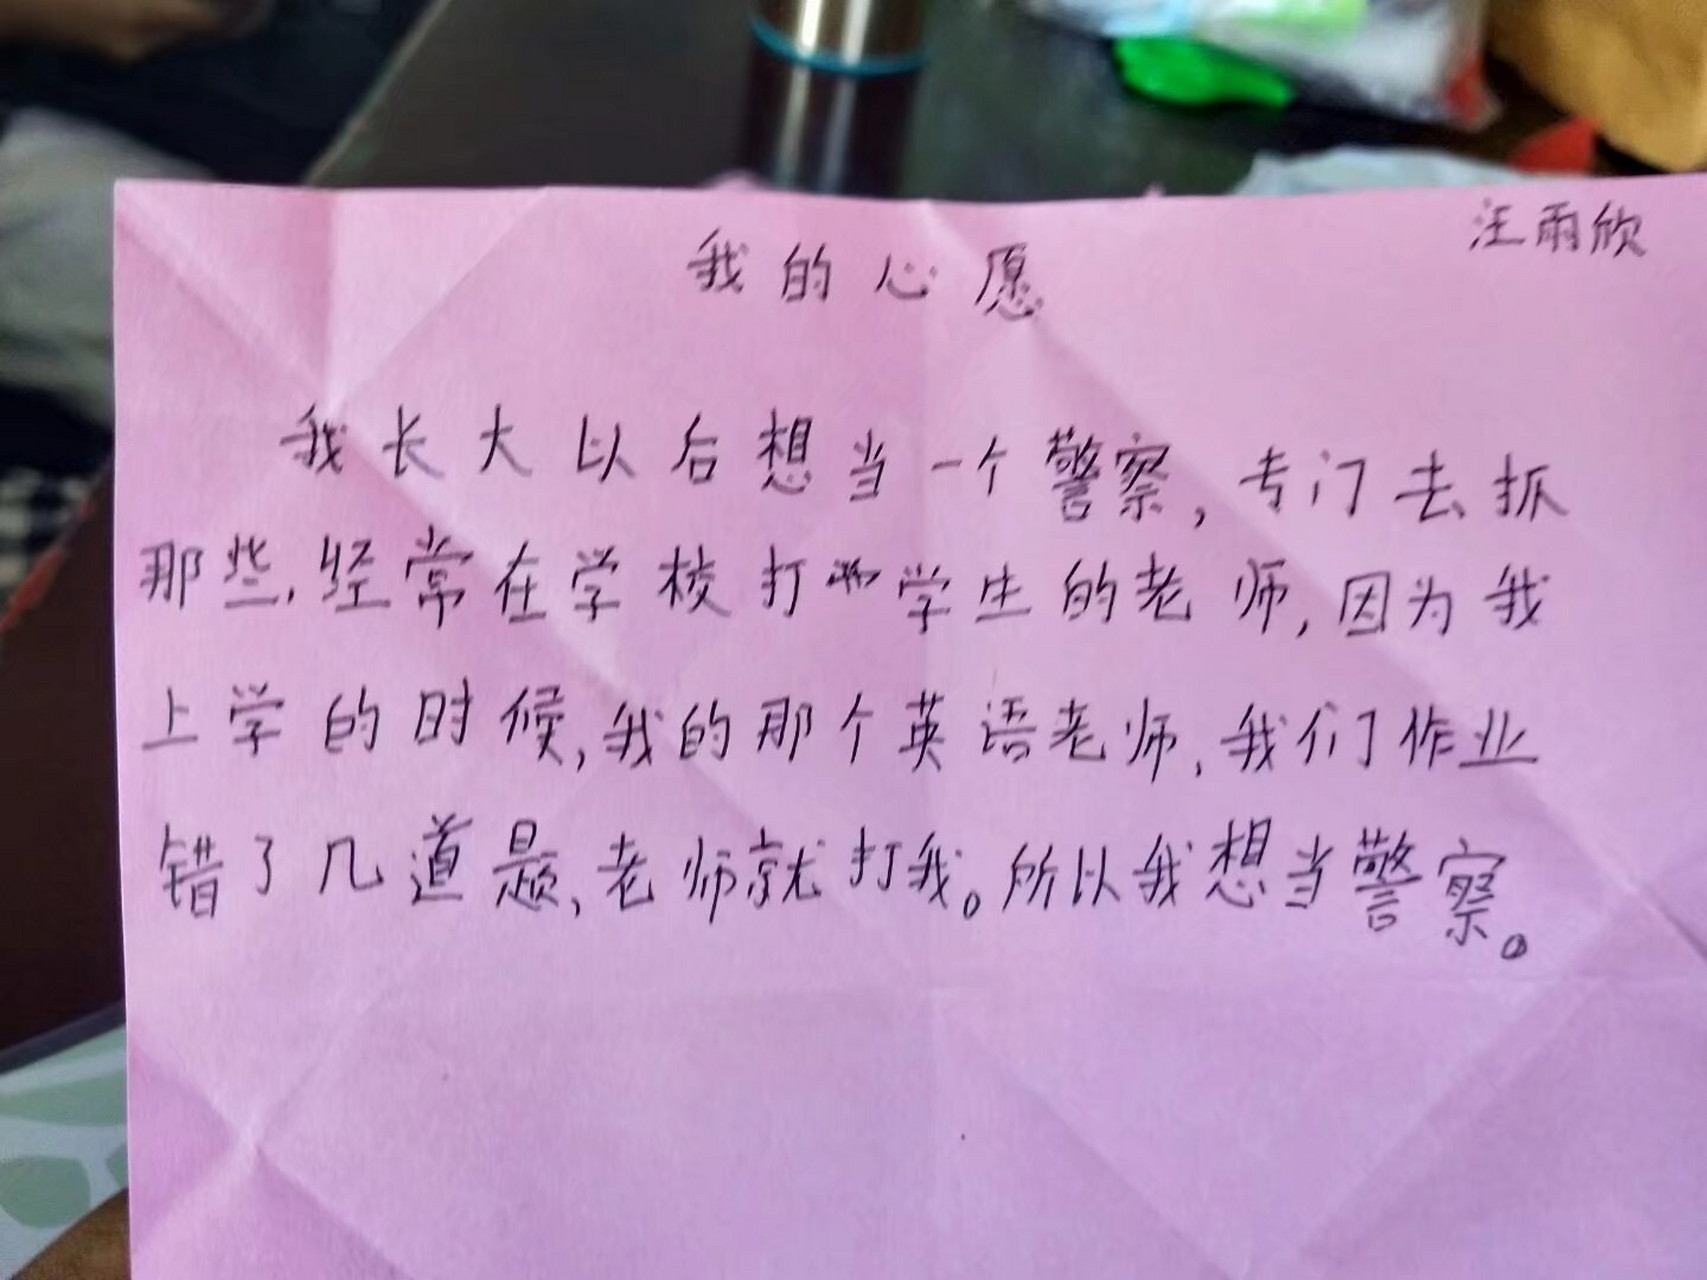 汪雨欣
我的心愿
我长大以后想当一个警察，专门去抓
那些，经常在学校打学生的老师，因为我
上学的时候，我的那个英语老师，我们作业
错了几道题，老师就打我。所以我想当警察。